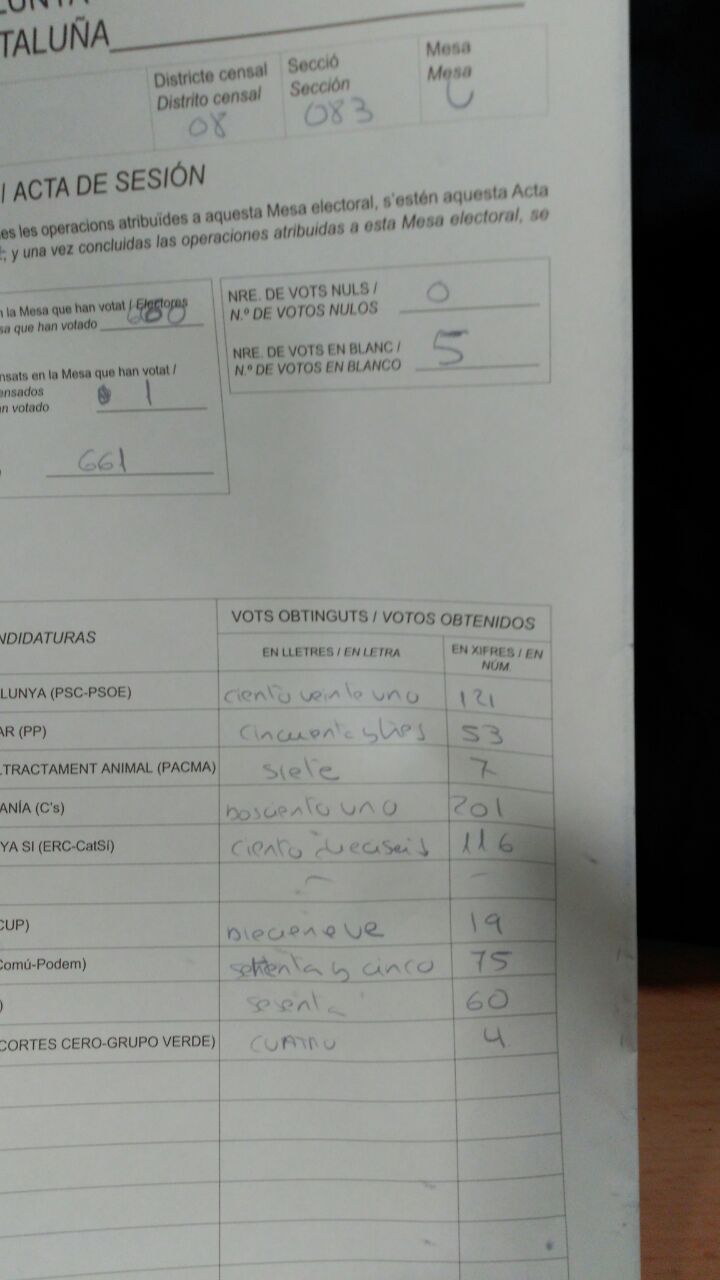 TALUÑA
Districte censal Secció Mesa
Distrito censal Sección Mesa
08 083 U
/ ACTA DE SESIÓN
es les operacions atribuïdes a aquesta Mesa electoral, s'estén aquesta Acta
; y una vez concluidas las operaciones atribuidas a esta Mesa electoral, se
la Mesa que han votat / Electores
sa que han votado 660
NRE. DE VOTS NULS /
N.º DE VOTOS NULOS 0
NRE. DE VOTS EN BLANC /
N.º DE VOTOS EN BLANCO 5
nsats en la Mesa que han votat /
ensados
n votado 1
661
NDIDATURAS VOTS OBTINGUTS / VOTOS OBTENIDOS
EN LLETRES / EN LETRA EN XIFRES / EN NÚM.
LUNYA (PSC-PSOE) ciento veinte uno 121
AR (PP) cincuenta y tres 53
LTRACTAMENT ANIMAL (PACMA) siete 7
ANÍA (C's) Doscento uno 201
YA SI (ERC-CatSí) ciento dieciseis 116
— —
CUP) Dieceneve 19
Comú-Podem) setenta y cinco 75
) sesenta 60
CORTES CERO-GRUPO VERDE) CUATRO 4